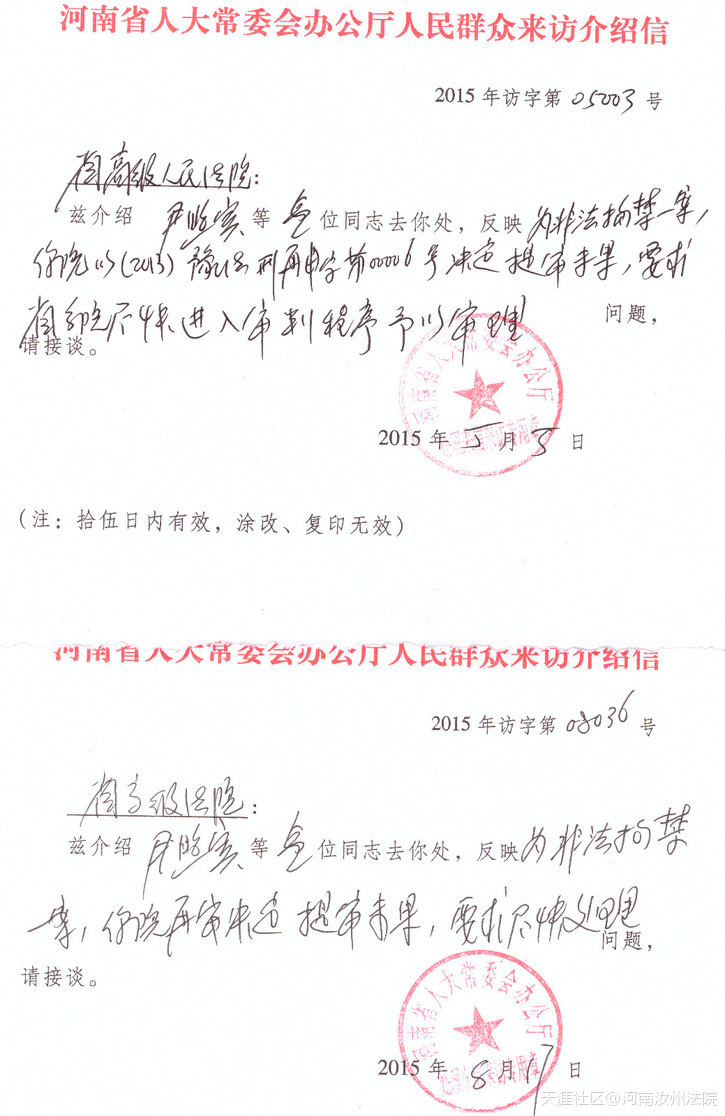 河南省人大常委会办公厅人民群众来访介绍信
2015 年访字第 05003 号
省高级人民法院:
兹介绍 等 壹 位同志去你处,反映 为非法拘禁一案,
你院以(2013)豫法刑再申字第00006号决定提审未果,要求
省高院尽快进入审判程序予以审理 问题,
请接谈。
河南省人大常委会办公厅
2015 年 5 月 5 日
(注:拾伍日内有效,涂改、复印无效)
河南省人大常委会办公厅人民群众来访介绍信
2015 年访字第 08036 号
省高级法院:
兹介绍 等 壹 位同志去你处,反映 为非法拘禁
一案,你院再审决定提审未果,要求尽快处理 问题,
请接谈。
河南省人大常委会办公厅
2015 年 8 月 17 日
天涯社区@河南汝州法院